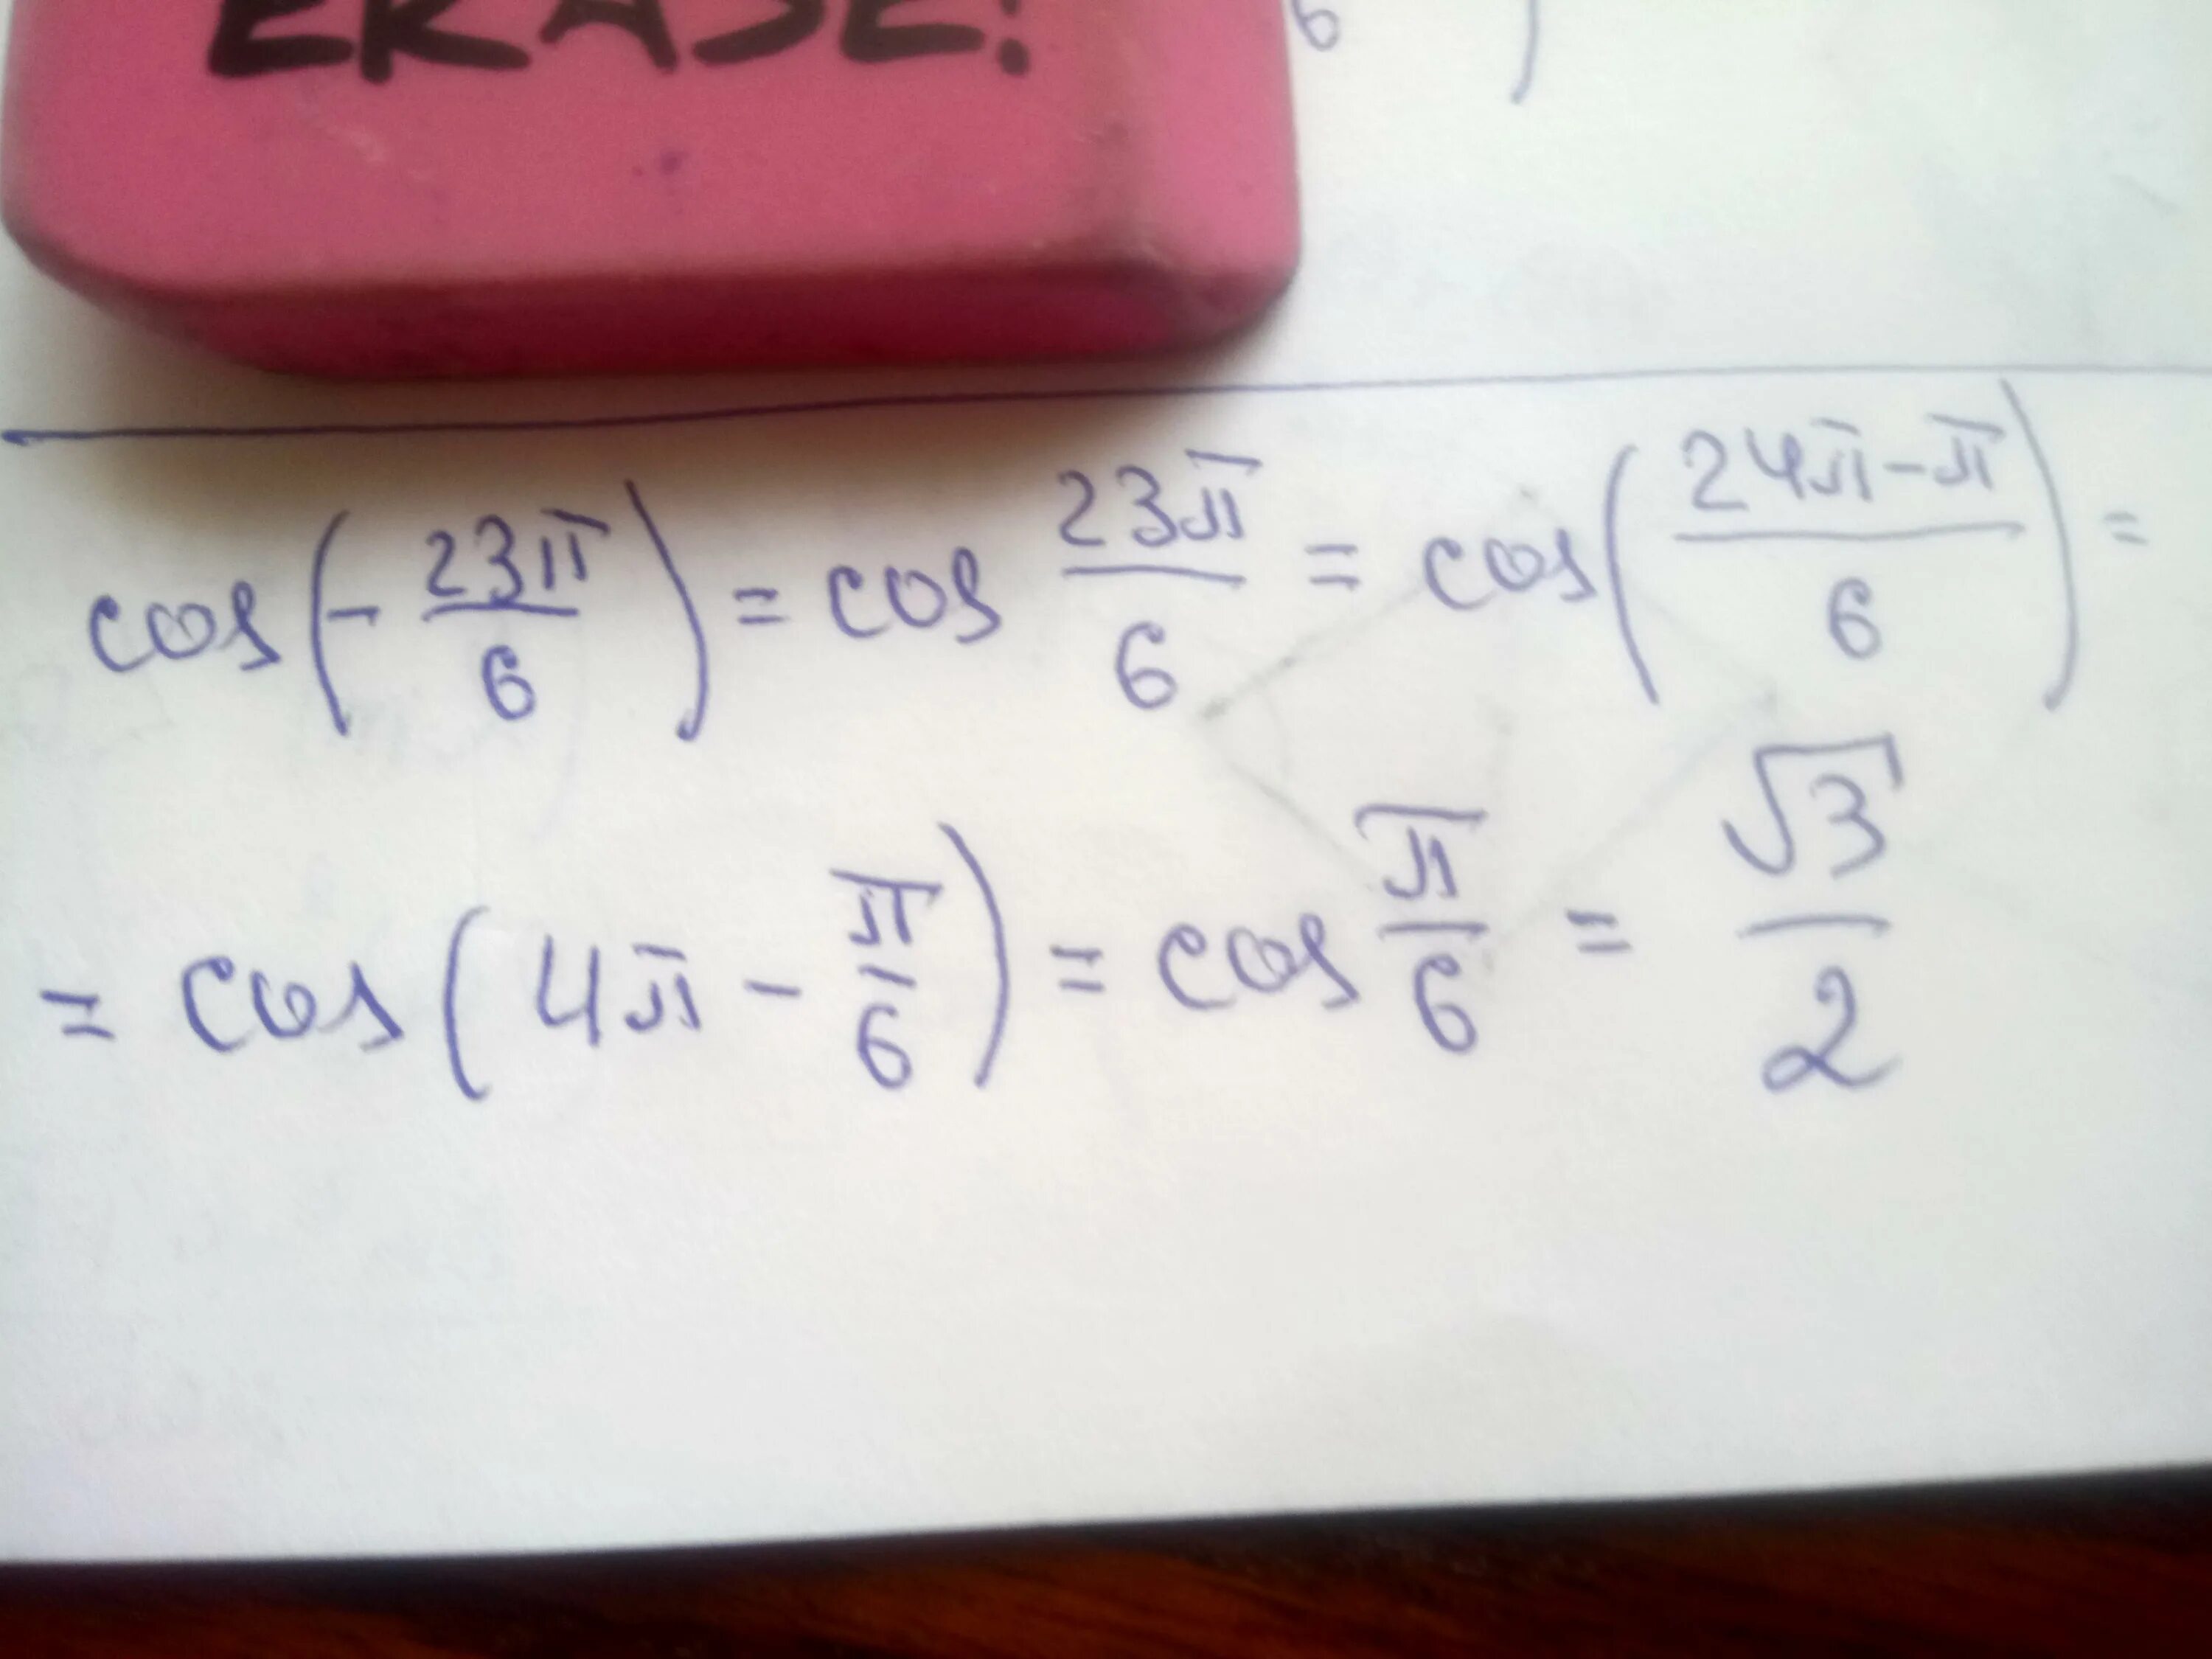 ERASE!
6 )
cos(-23π/6) = cos 23π/6 = cos(24π-π/6) =
= cos(4π - π/6) = cos π/6 = √3/2